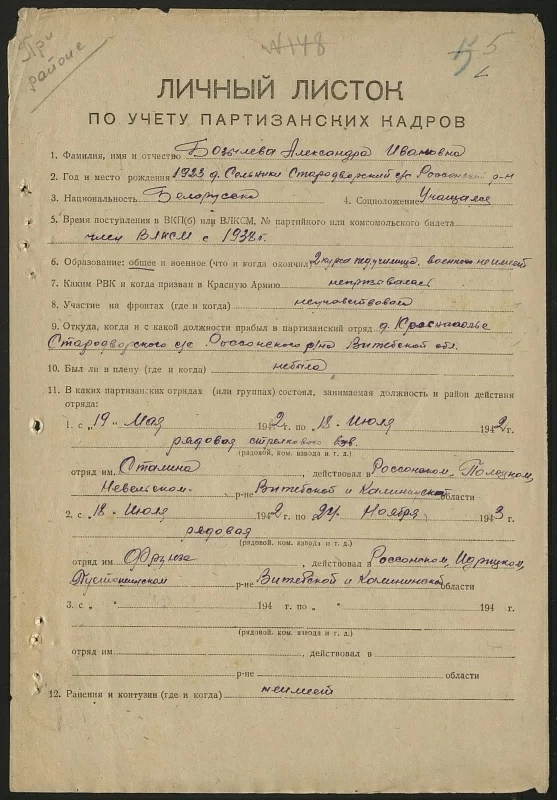 При
районе
№148
5
ЛИЧНЫЙ ЛИСТОК
ПО УЧЕТУ ПАРТИЗАНСКИХ КАДРОВ
1. Фамилия, имя и отчество Бозылева Александра Ивановна
2. Год и место рождения 1923 д. Сельники Стародворский с/с Россонский р-н
3. Национальность Белорусска 4. Соцположение Учащаяся
5. Время поступления в ВКП(б) или ВЛКСМ, № партийного или комсомольского билета
член ВЛКСМ с 1938г.
6. Образование: общее и военное (что и когда окончил) 2 курса педучилища, военного не имеет
7. Каким РВК и когда призван в Красную Армию непризывалась
8. Участие на фронтах (где и когда) неучавствовала
9. Откуда, когда и с какой должности прибыл в партизанский отряд д. Краснополье
Стародворского с/с Россонского р/на Витебской обл.
10. Был ли в плену (где и когда) небыла
11. В каких партизанских отрядах (или группах) состоял, занимаемая должность и район действия
отряда:
1. с „19" Мая 1942 г. по „18" Июля 1942 г.
рядовая стрелкового взв.
(рядовой, ком. взвода и т. д.)
отряд им Сталина, действовал в Россонском, Полоцком,
Невельском р-не Витебской и Калининской области
2. с „18" Июля 1942 г. по „24" Ноября 1943 г.
рядовая
(рядовой, ком. взвода и т. д.)
отряд им Фрунзе, действовал в Россонском, Идрицком,
Пустошинском р-не Витебской и Калининской области
3. с „ " 194 г. по „ " 194 г.
(рядовой, ком. взвода и т. д.)
отряд им , действовал в
р-не области
12. Ранения и контузии (где и когда) неимеет